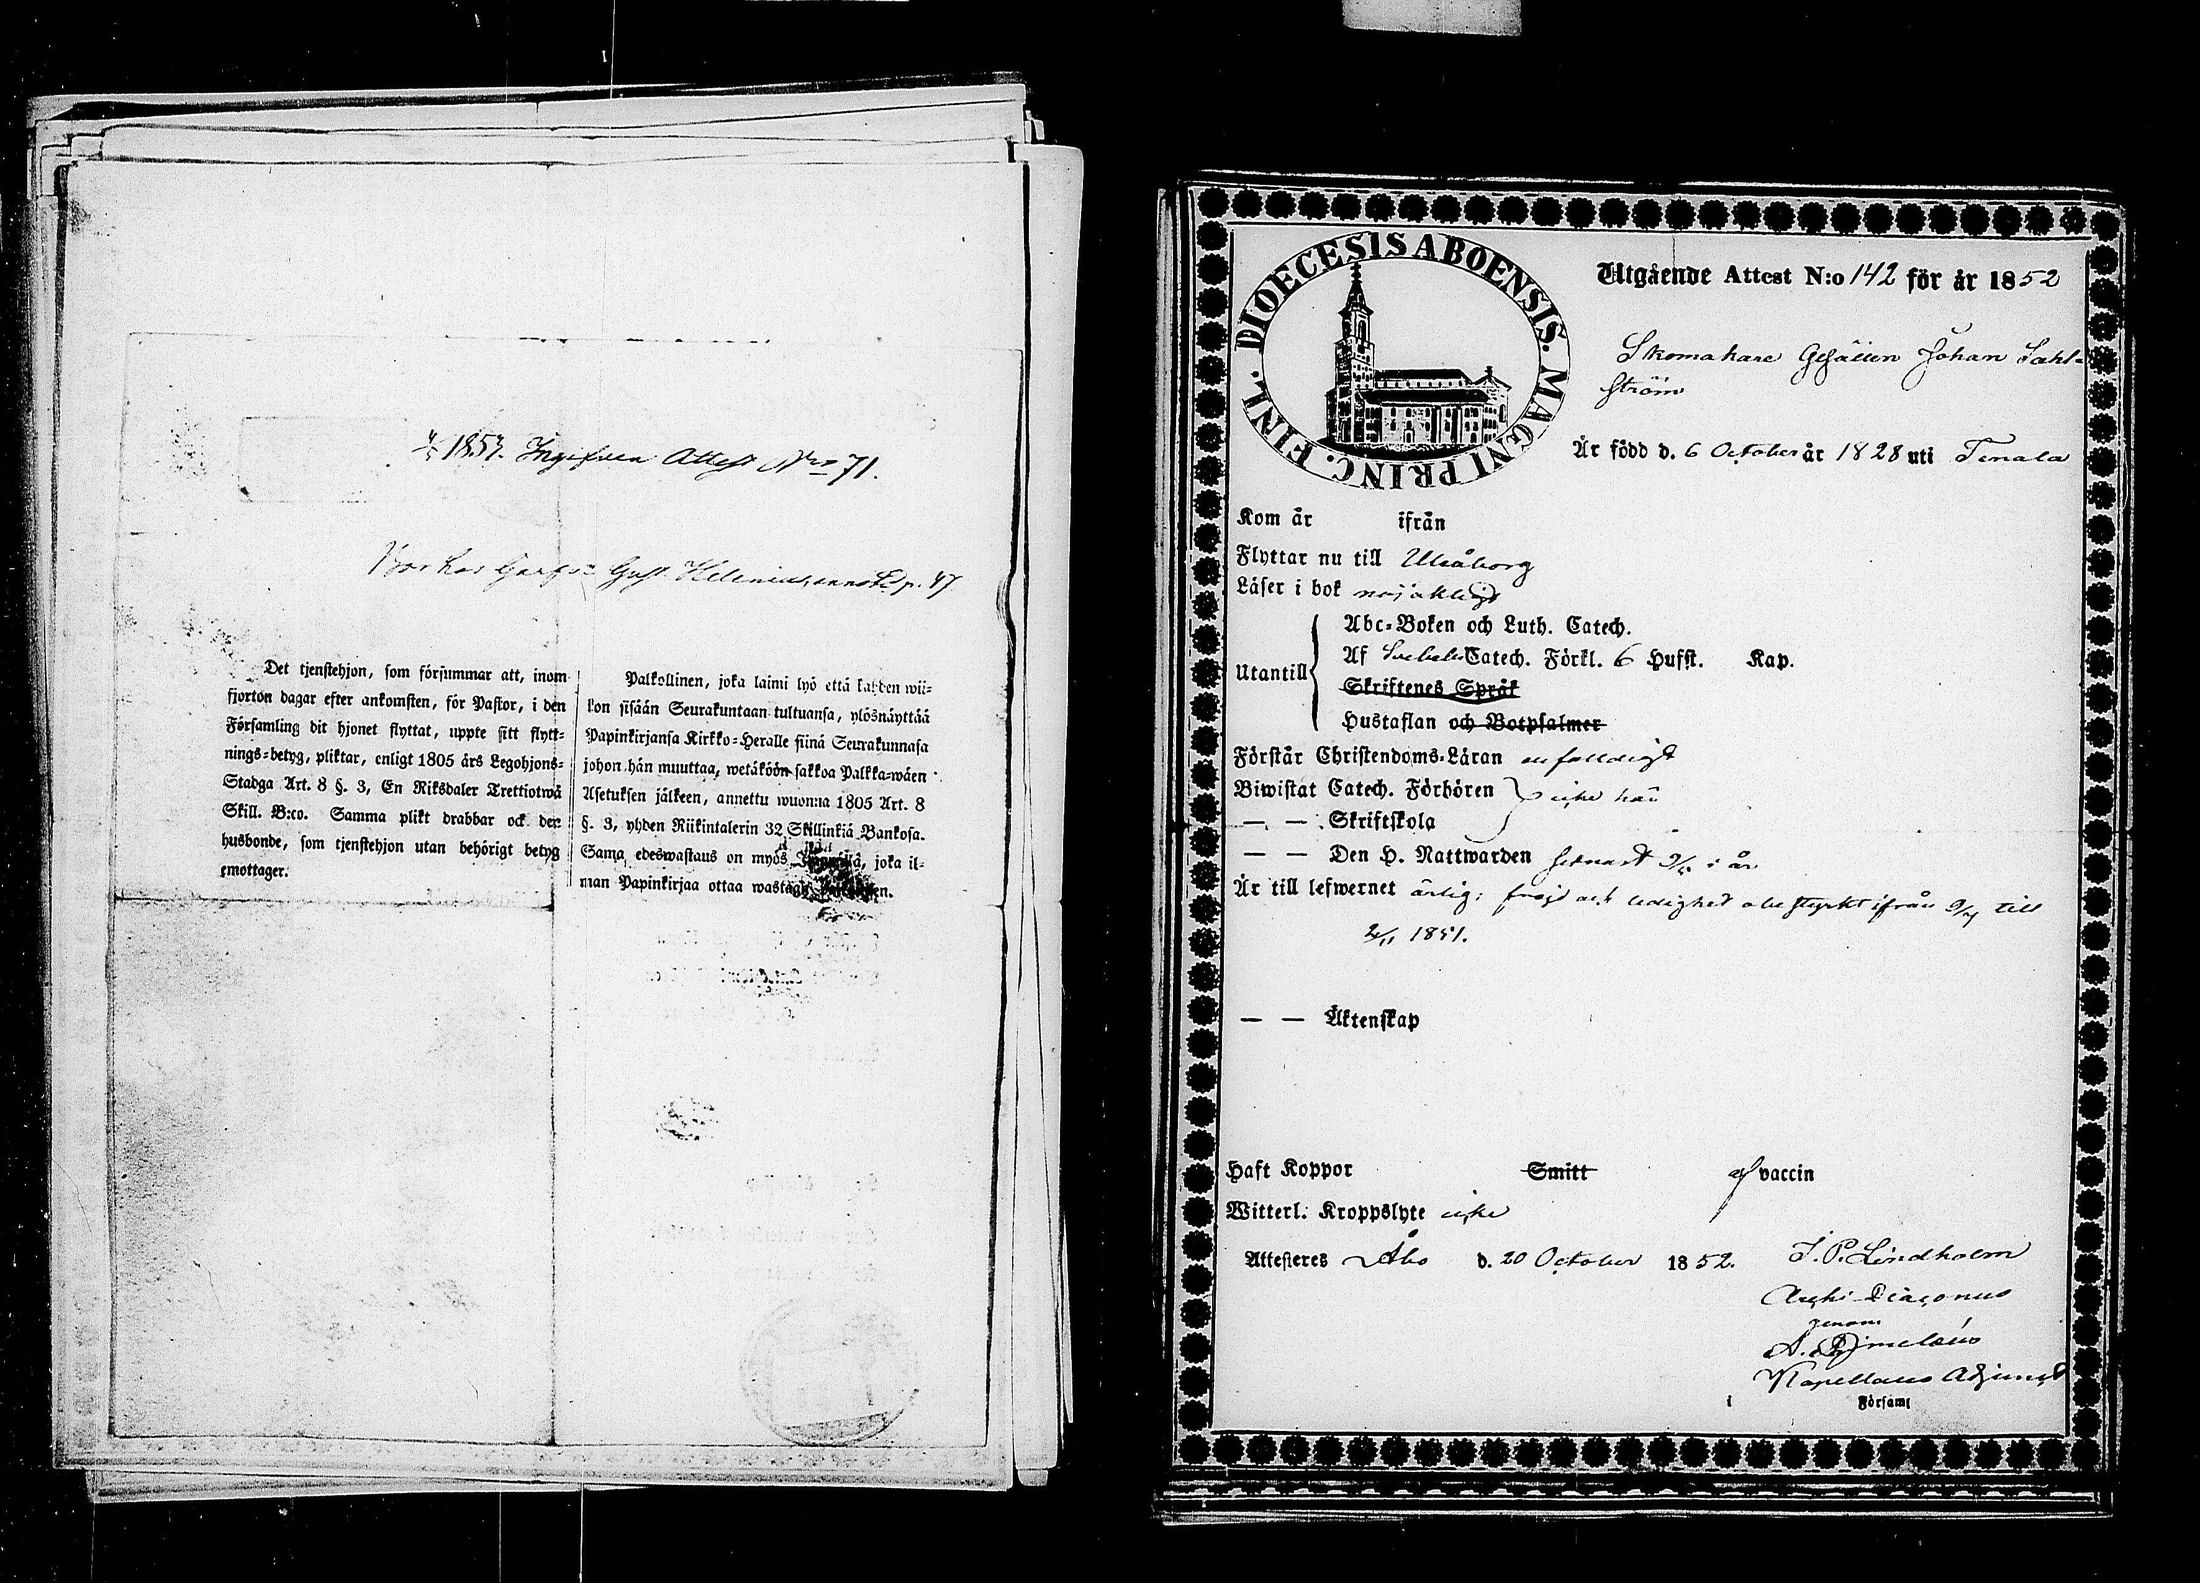 1853. Ingifven Attest Nro 71.
Gust. Helenius p. 47
Det tjenstehjon, som försummar att, inom
fjorton dagar efter ankomsten, för Pastor, i den
Församling dit hjonet flyttat, uppte sitt flytt-
nings-betyg, pliktar, enligt 1805 års Legohjons-
Stadga Art. 8 §. 3, En Riksdaler Trettiotwå
Skill. B:co. Samma plikt drabbar ock den
husbonde, som tjenstehjon utan behörigt betyg
emottager.
Palkollinen, joka laimi lyö että kahden wii-
kon sisään Seurakuntaan tultuansa, ylösnäyttää
Papinkirjansa Kirkko-Heralle siinä Seurakunnasa
johon hän muuttaa, wetäköön sakkoa Palkka-wäen
Asetuksen jälkeen, annettu wuonna 1805 Art. 8
§. 3, yhden Riikintalerin 32 Skillinkiä Bankosa.
Sama edeswastaus on myös Isännällä, joka il-
man Papinkirjaa ottaa wastaan
DIOECESIS ABOENSIS. MAGNI PRINC. FINL.
Utgående Attest N:o 142 för år 1852
Skomakare Gesällen Johan Sahl-
ström
Är född d. 6 October år 1828 uti Tenala
Kom år ifrån
Flyttar nu till Uleåborg
Läser i bok nöjaktligt
Utantill
Abc-Boken och Luth. Catech.
Af Svebelii Catech. Förkl. 6 Hufst. Kap.
Skriftenes Språk
Hustaflan och Botpsalmer
Förstår Christendoms-Läran enfaldigt
Biwistat Catech. Förhören icke här
— — Skriftskola
— — Den H. Nattwarden sednast i år
Är till lefwernet ärlig; frejd och ledighet obestyrkt ifrån till
1851.
— — Äktenskap
Haft Koppor Smitt af vaccin
Witterl. Kroppslyte icke
Attesteres Åbo d. 20 October 1852.
J. P. Lindholm
Archi-Diaconus
genom
Kapellans Adjunct
i Församl